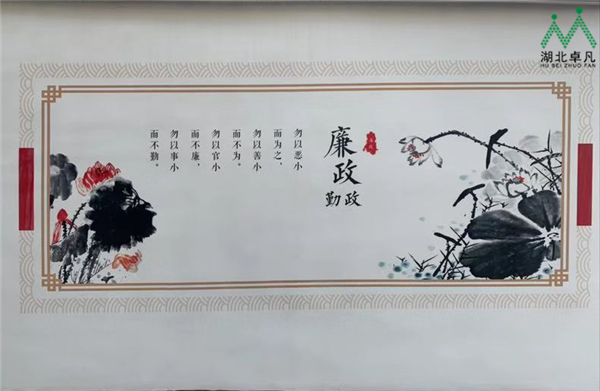 湖北卓凡
HU BEI ZHUO FAN
廉政
勤政
勿以恶小
而为之，
勿以善小
而不为。
勿以官小
而不廉，
勿以事小
而不勤。